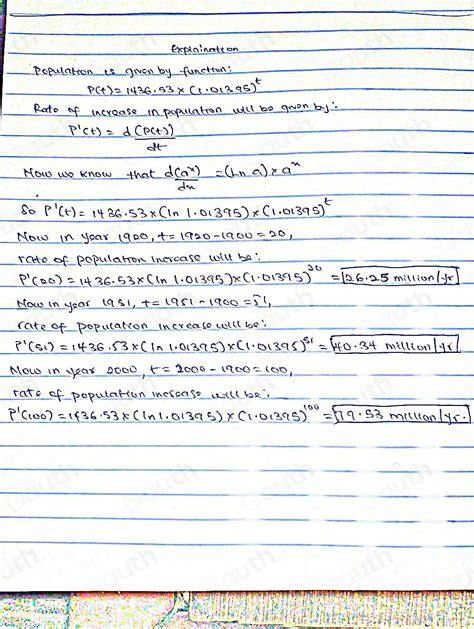 Explaination
Population is given by function:
P(t) = 1436.53 × (1.01395)^t
Rate of increase in population will be given by:
P'(t) = d(P(t))/dt
Now we know that d(a^x)/dx = (ln a) × a^x
So P'(t) = 1436.53 × (ln 1.01395) × (1.01395)^t
Now in year 1920, t = 1920 - 1900 = 20,
rate of population increase will be:
P'(20) = 1436.53 × (ln 1.01395) × (1.01395)^20 = 26.25 million/yr
Now in year 1951, t = 1951 - 1900 = 51,
rate of population increase will be:
P'(51) = 1436.53 × (ln 1.01395) × (1.01395)^51 = 40.34 million/yr.
Now in year 2000, t = 2000 - 1900 = 100,
rate of population increase will be:
P'(100) = 1436.53 × (ln 1.01395) × (1.01395)^100 = 79.53 million/yr.